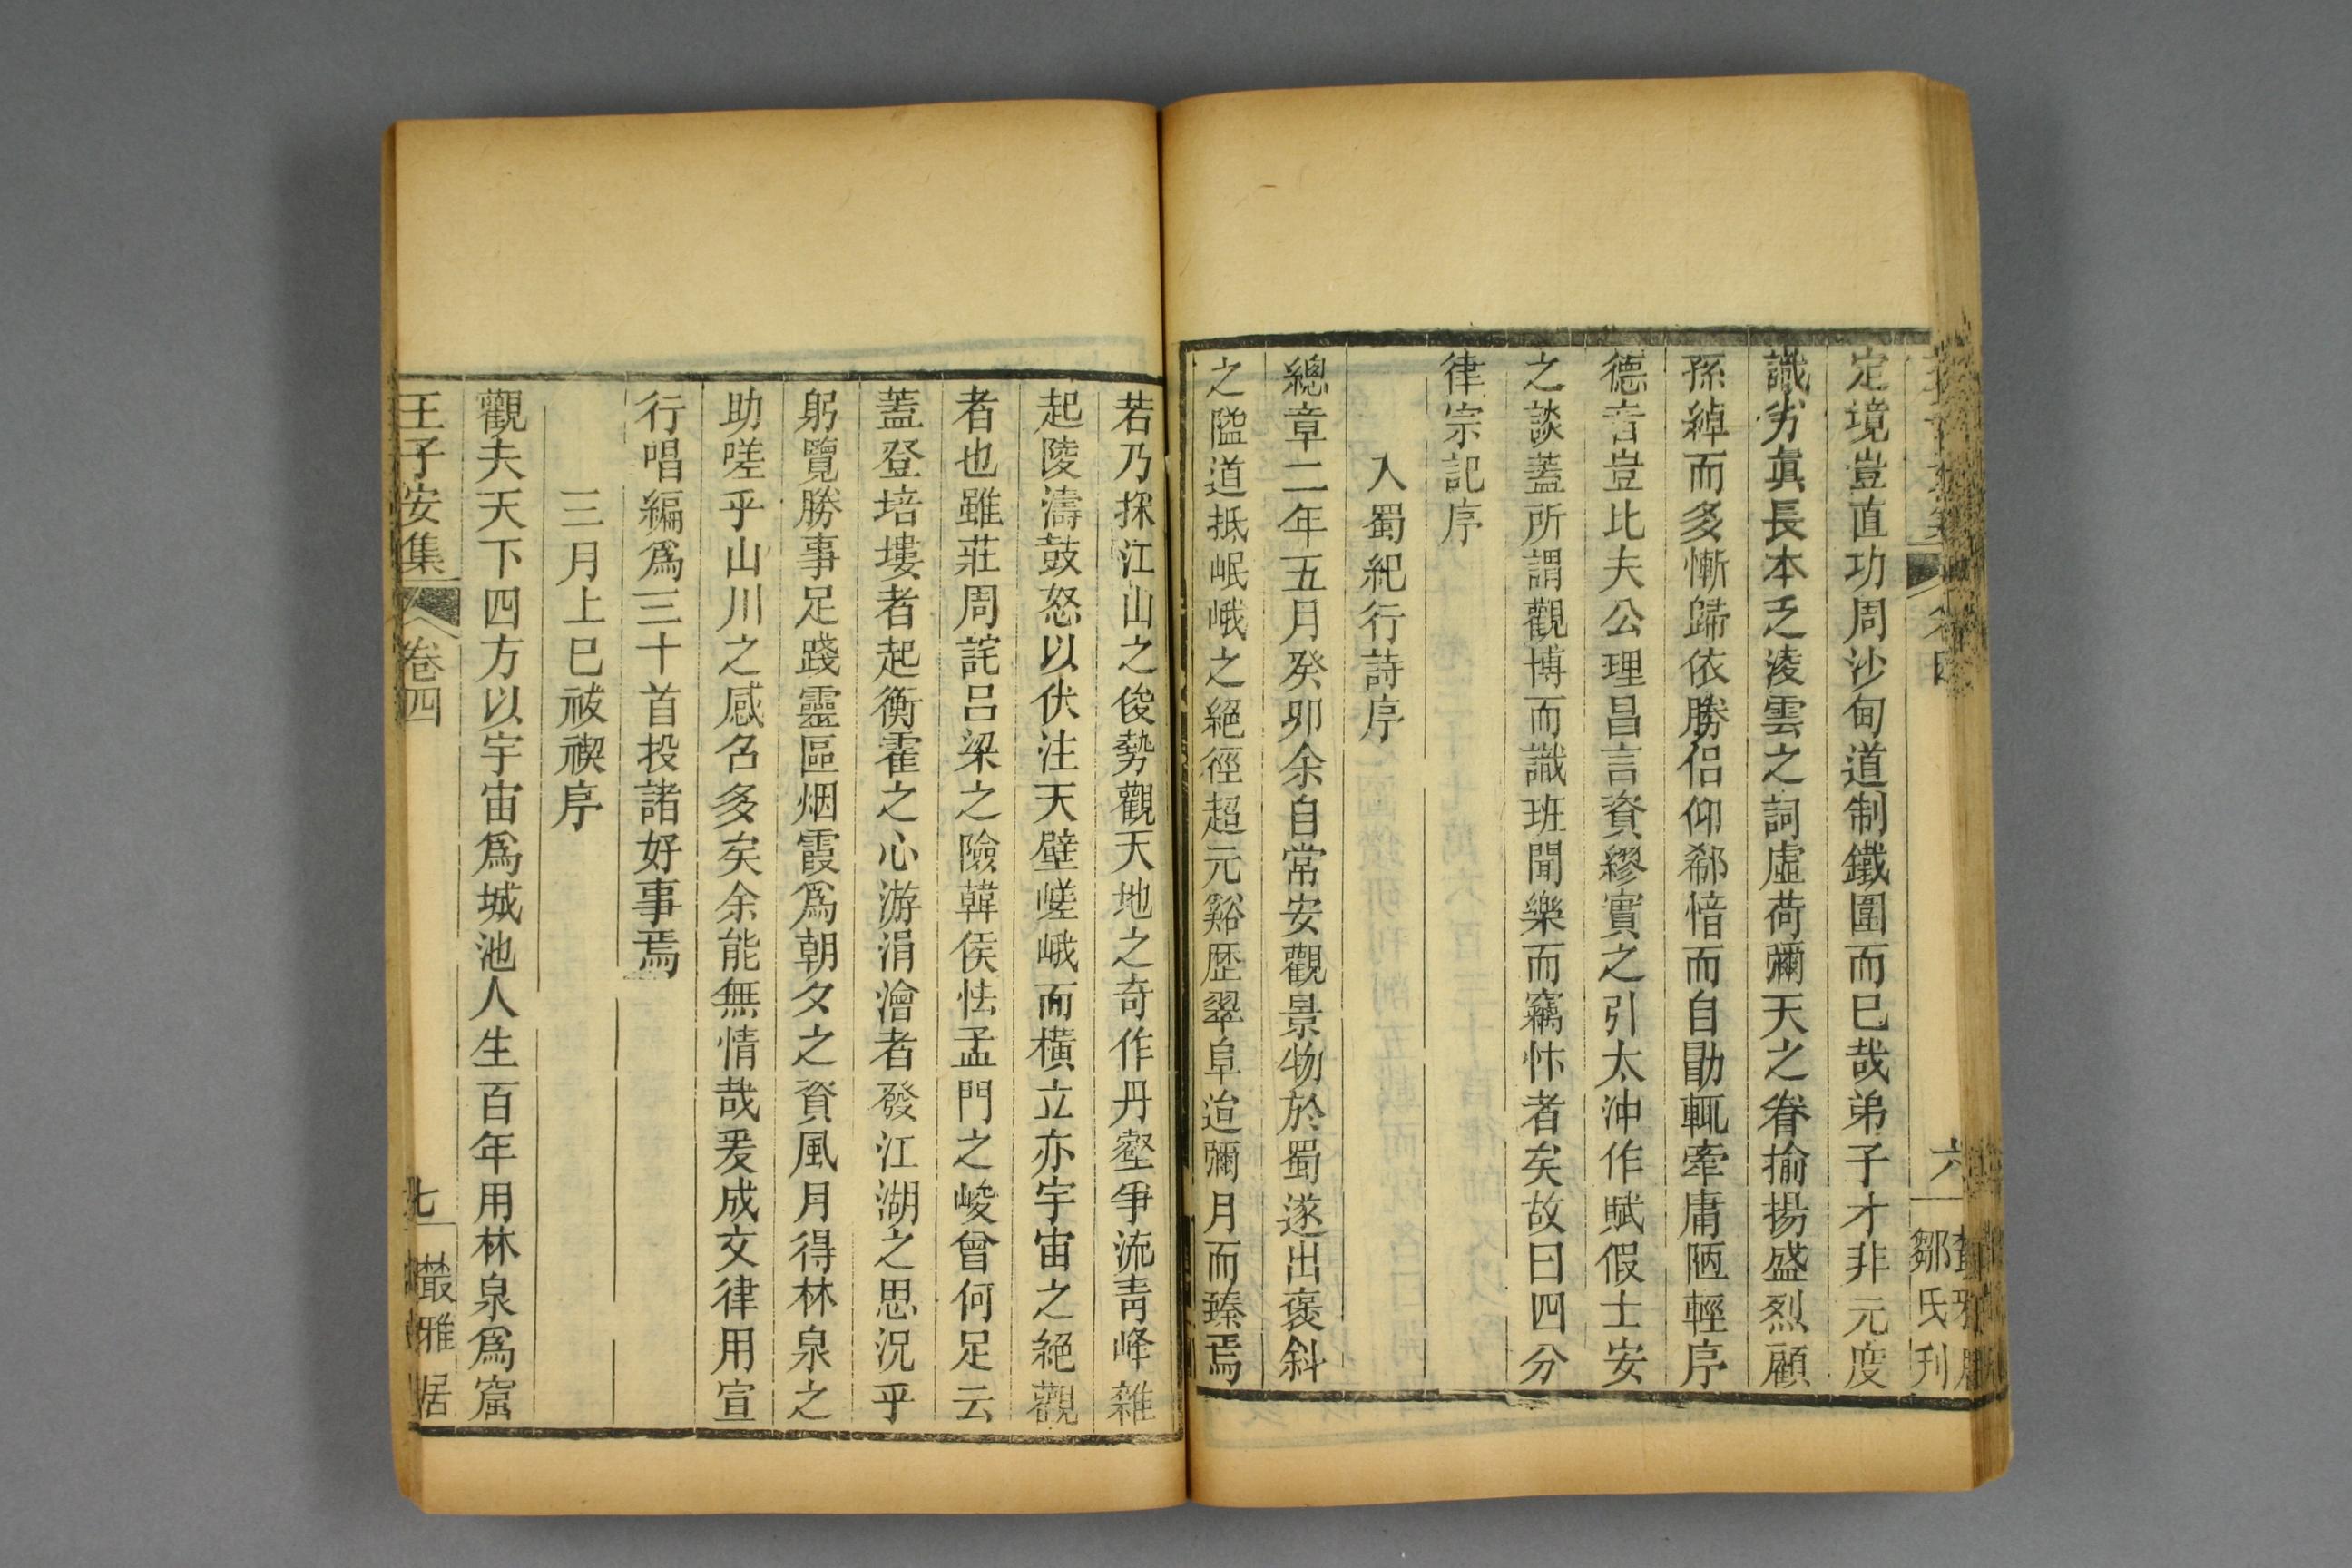 卷四
六
鄒氏刊
定境豈直功周沙甸道制鐵圍而已哉弟子才非元度
識劣眞長本乏淩雲之詞虛荷彌天之眷揄揚盛烈顧
孫綽而多慚歸依勝侶仰郗愔而自勖輒牽庸陋輕序
德音豈比夫公理昌言資繆實之引太沖作賦假士安
之談蓋所謂觀博而識班聞樂而竊忭者矣故曰四分
律宗記序
入蜀紀行詩序
總章二年五月癸卯余自常安觀景物於蜀遂出褒斜
之隘道抵岷峨之絕徑超元谿歷翠阜迨彌月而臻焉
若乃採江山之俊勢觀天地之奇作丹壑爭流靑峰雜
起陵濤鼓怒以伏注天壁嵯峨而橫立亦宇宙之絕觀
者也雖莊周詫呂梁之險韓侯怯孟門之峻曾何足云
蓋登培塿者起衡霍之心游涓澮者發江湖之思況乎
躬覽勝事足踐靈區烟霞爲朝夕之資風月得林泉之
助嗟乎山川之感召多矣余能無情哉爰成文律用宣
行唱編爲三十首投諸好事焉
三月上巳祓禊序
觀夫天下四方以宇宙爲城池人生百年用林泉爲窟
王子安集
卷四
七
叢雅居